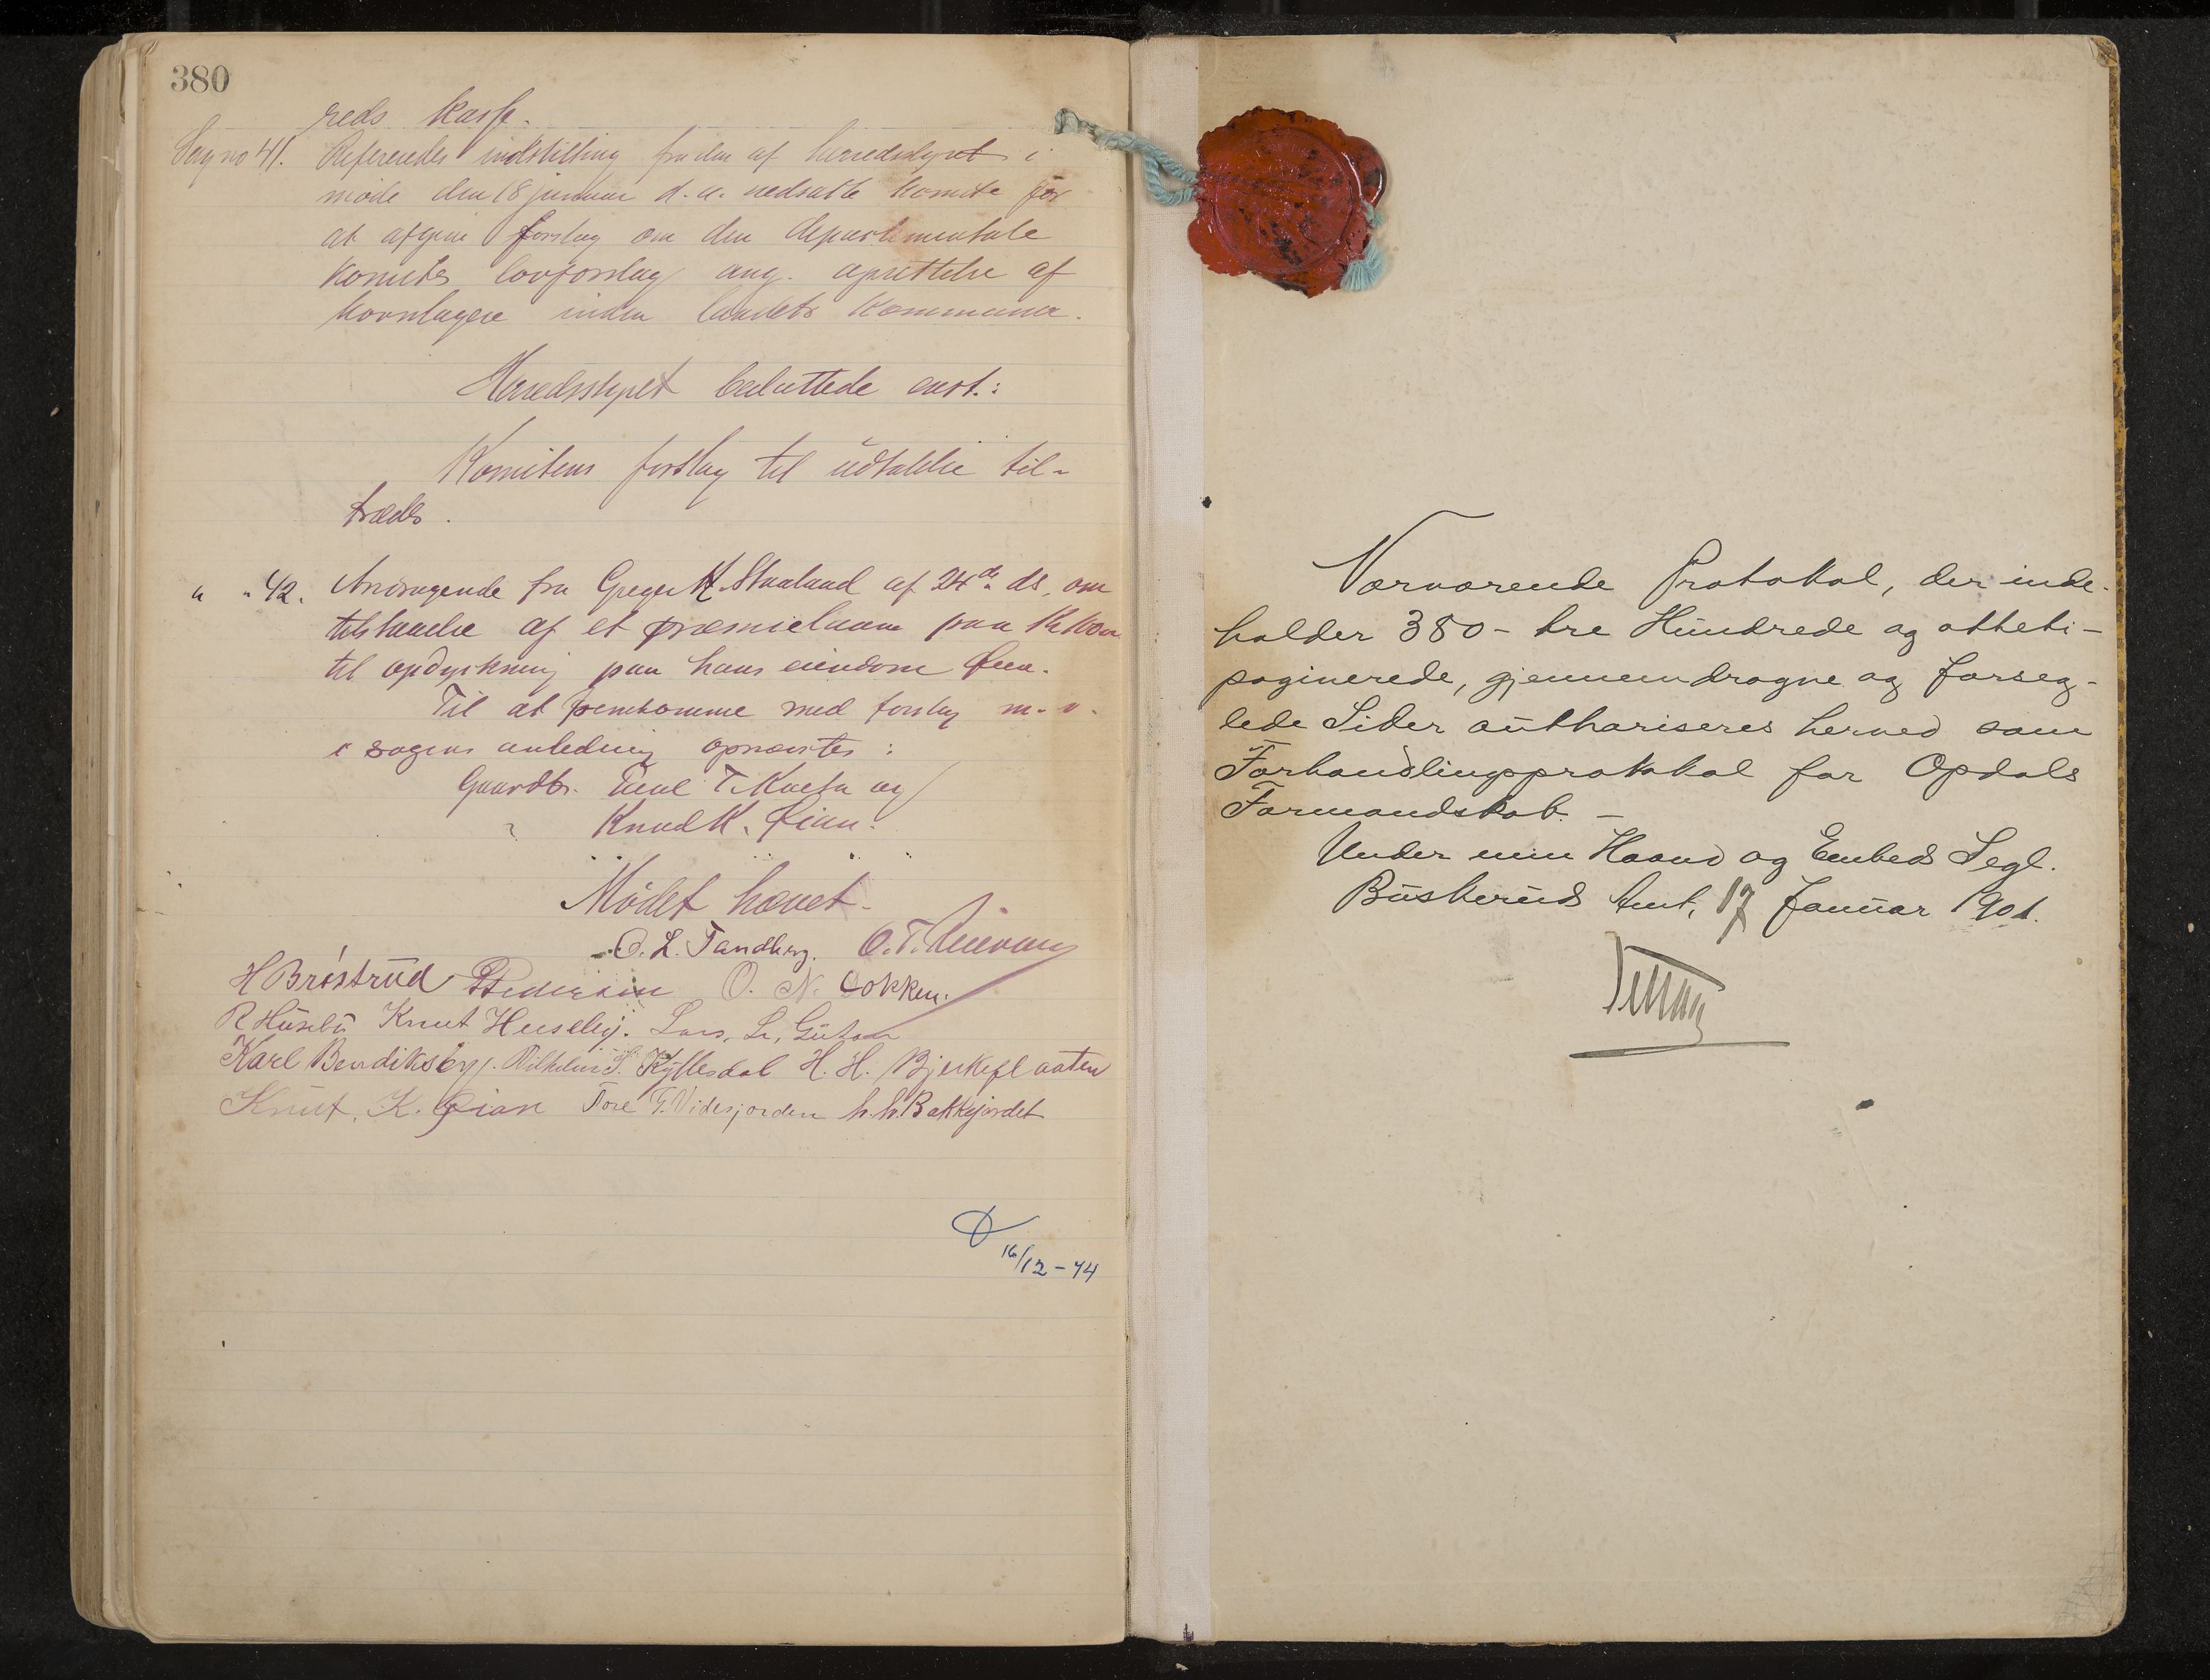 380
reds kasse.
Sag no 41. Refereredes indstilling fra den af herredsstyret i
møde den 18 januar d. a. nedsatte komite for
at afgive forslag om den departementale
komites lovforslag ang. oprettelse af
kornlagere inden landets kommuner.
Herredsstyret besluttede enst.:
Komiteens forslag til udtalelse til-
trædes.
" " 42. Andragende fra Greger K. Staaland af 24de ds. om
tilstaaelse af et præmielaan paa
til opdyrkning paa hans eiendom
Til at fremkomme med forslag m. v.
i sagens anledning opnævntes:
Gaardbr. T. og
" Knud K. Øian.
Mødet hævet.
O. L. Tandberg. O. T.
H Brøstrud P Pedersen O. N. Cokken.
R Huseby Knut Huseby. Lars. L.
Karl Bendiksby. Vilhelm S. Kyllesdal H. H. Bjerkeflaaten
Knut. K. Øian Tore T. Videsjorden h. h. Bakkejordet
16/12-44
Nærværende Protokol, der inde-
holder 380 - tre Hundrede og otteti -
paginerede, gjennemdragne og forseg-
lede Sider authoriseres herved som
Forhandlingsprotokol for Opdals
Formandskab. -
Under min Haand og Embeds Segl.
Buskeruds Amt, 17 Januar 1901.